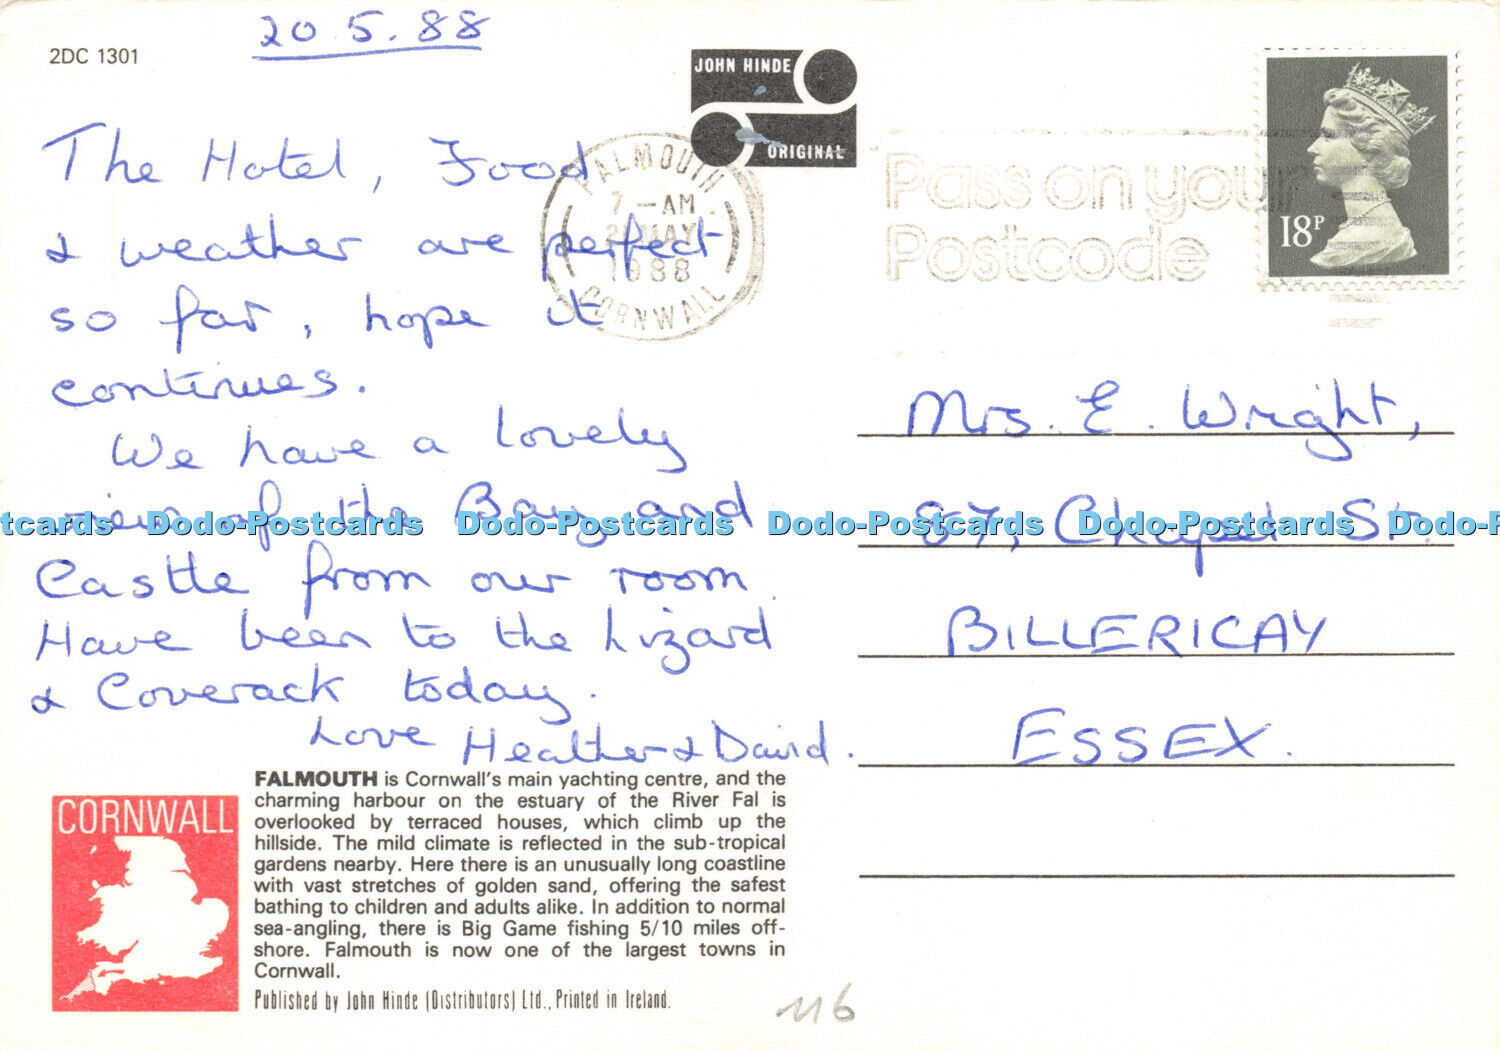 20.5.88
2DC 1301
JOHN HINDE
ORIGINAL
The Hotel, Food
& weather are perfect
so far, hope it
continues.
We have a lovely
view of the Bay and
Castle from our room.
Have been to the Lizard
& Coverack today.
Love Heather & David.
FALMOUTH
7-AM
MAY
1988
CORNWALL
Pass on your
Postcode
18P
Mrs. E. Wright,
87, Chapel St.
BILLERICAY
ESSEX.
Dodo-Postcards Dodo-Postcards Dodo-Postcards Dodo-Postcards
CORNWALL
FALMOUTH is Cornwall's main yachting centre, and the
charming harbour on the estuary of the River Fal is
overlooked by terraced houses, which climb up the
hillside. The mild climate is reflected in the sub-tropical
gardens nearby. Here there is an unusually long coastline
with vast stretches of golden sand, offering the safest
bathing to children and adults alike. In addition to normal
sea-angling, there is Big Game fishing 5/10 miles off-
shore. Falmouth is now one of the largest towns in
Cornwall.
Published by John Hinde (Distributors) Ltd., Printed in Ireland.